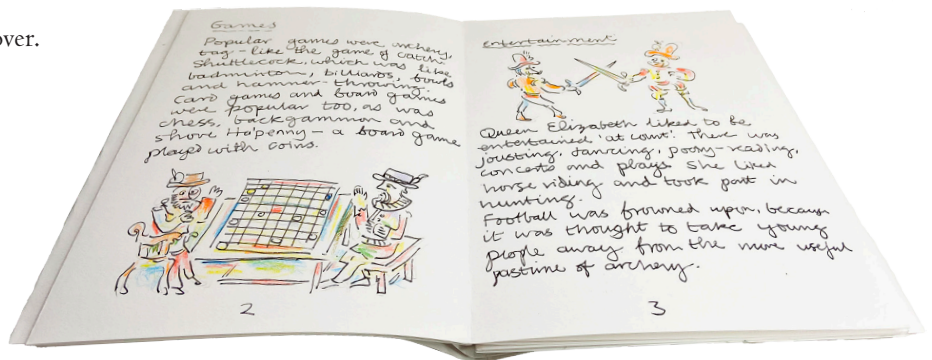 over.
Games
Popular games were archery,
tag - like the game of catch.
Shuttlecock, which was like
badminton, billiards, bowls
and hammer-throwing.
Card games and board games
were popular too, as was
chess, backgammon and
shove Ha'penny - a board game
played with coins.
2
entertainment
Queen Elizabeth liked to be
entertained 'at court'. There was
jousting, dancing, poetry-reading,
concerts and plays. She liked
horse riding and took part in
hunting.
Football was frowned upon, because
it was thought to take young
people away from the more useful
pastime of archery.
3